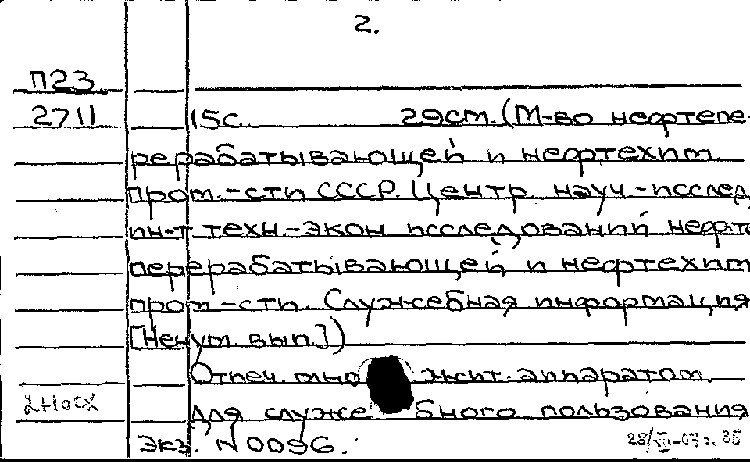 2.
П23
2711 15с. 29см. (М-во нефтепе-
рерабатывающей и нефтехим.
пром.-сти СССР. Центр. науч.-исслед.
ин-т техн.-экон исследований нефте
перерабатывающей и нефтехим
пром-сти. Служебная информация
[Ненум. вып.])
Отпеч. множит. аппаратом.
Для служебного пользования
Экз. N0096.